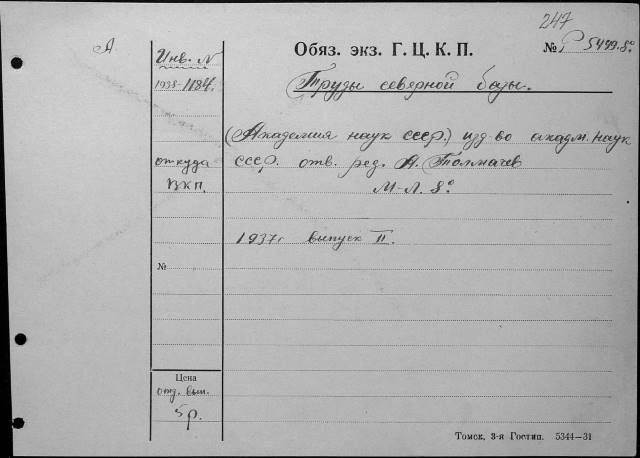 247
А
Инв. №
1938-1184.
Обяз. экз. Г. Ц. К. П.
№ Р 5499.8°
Труды северной базы.
(Академия наук СССР.) изд-во академ. наук
СССР. отв. ред. А. Толмачев
М-Л. 8°.
откуда
ВКП.
1937г выпуск II.
№
Цена
отд. вып.
5р.
Томск, 3-я Гостип. 5344—31